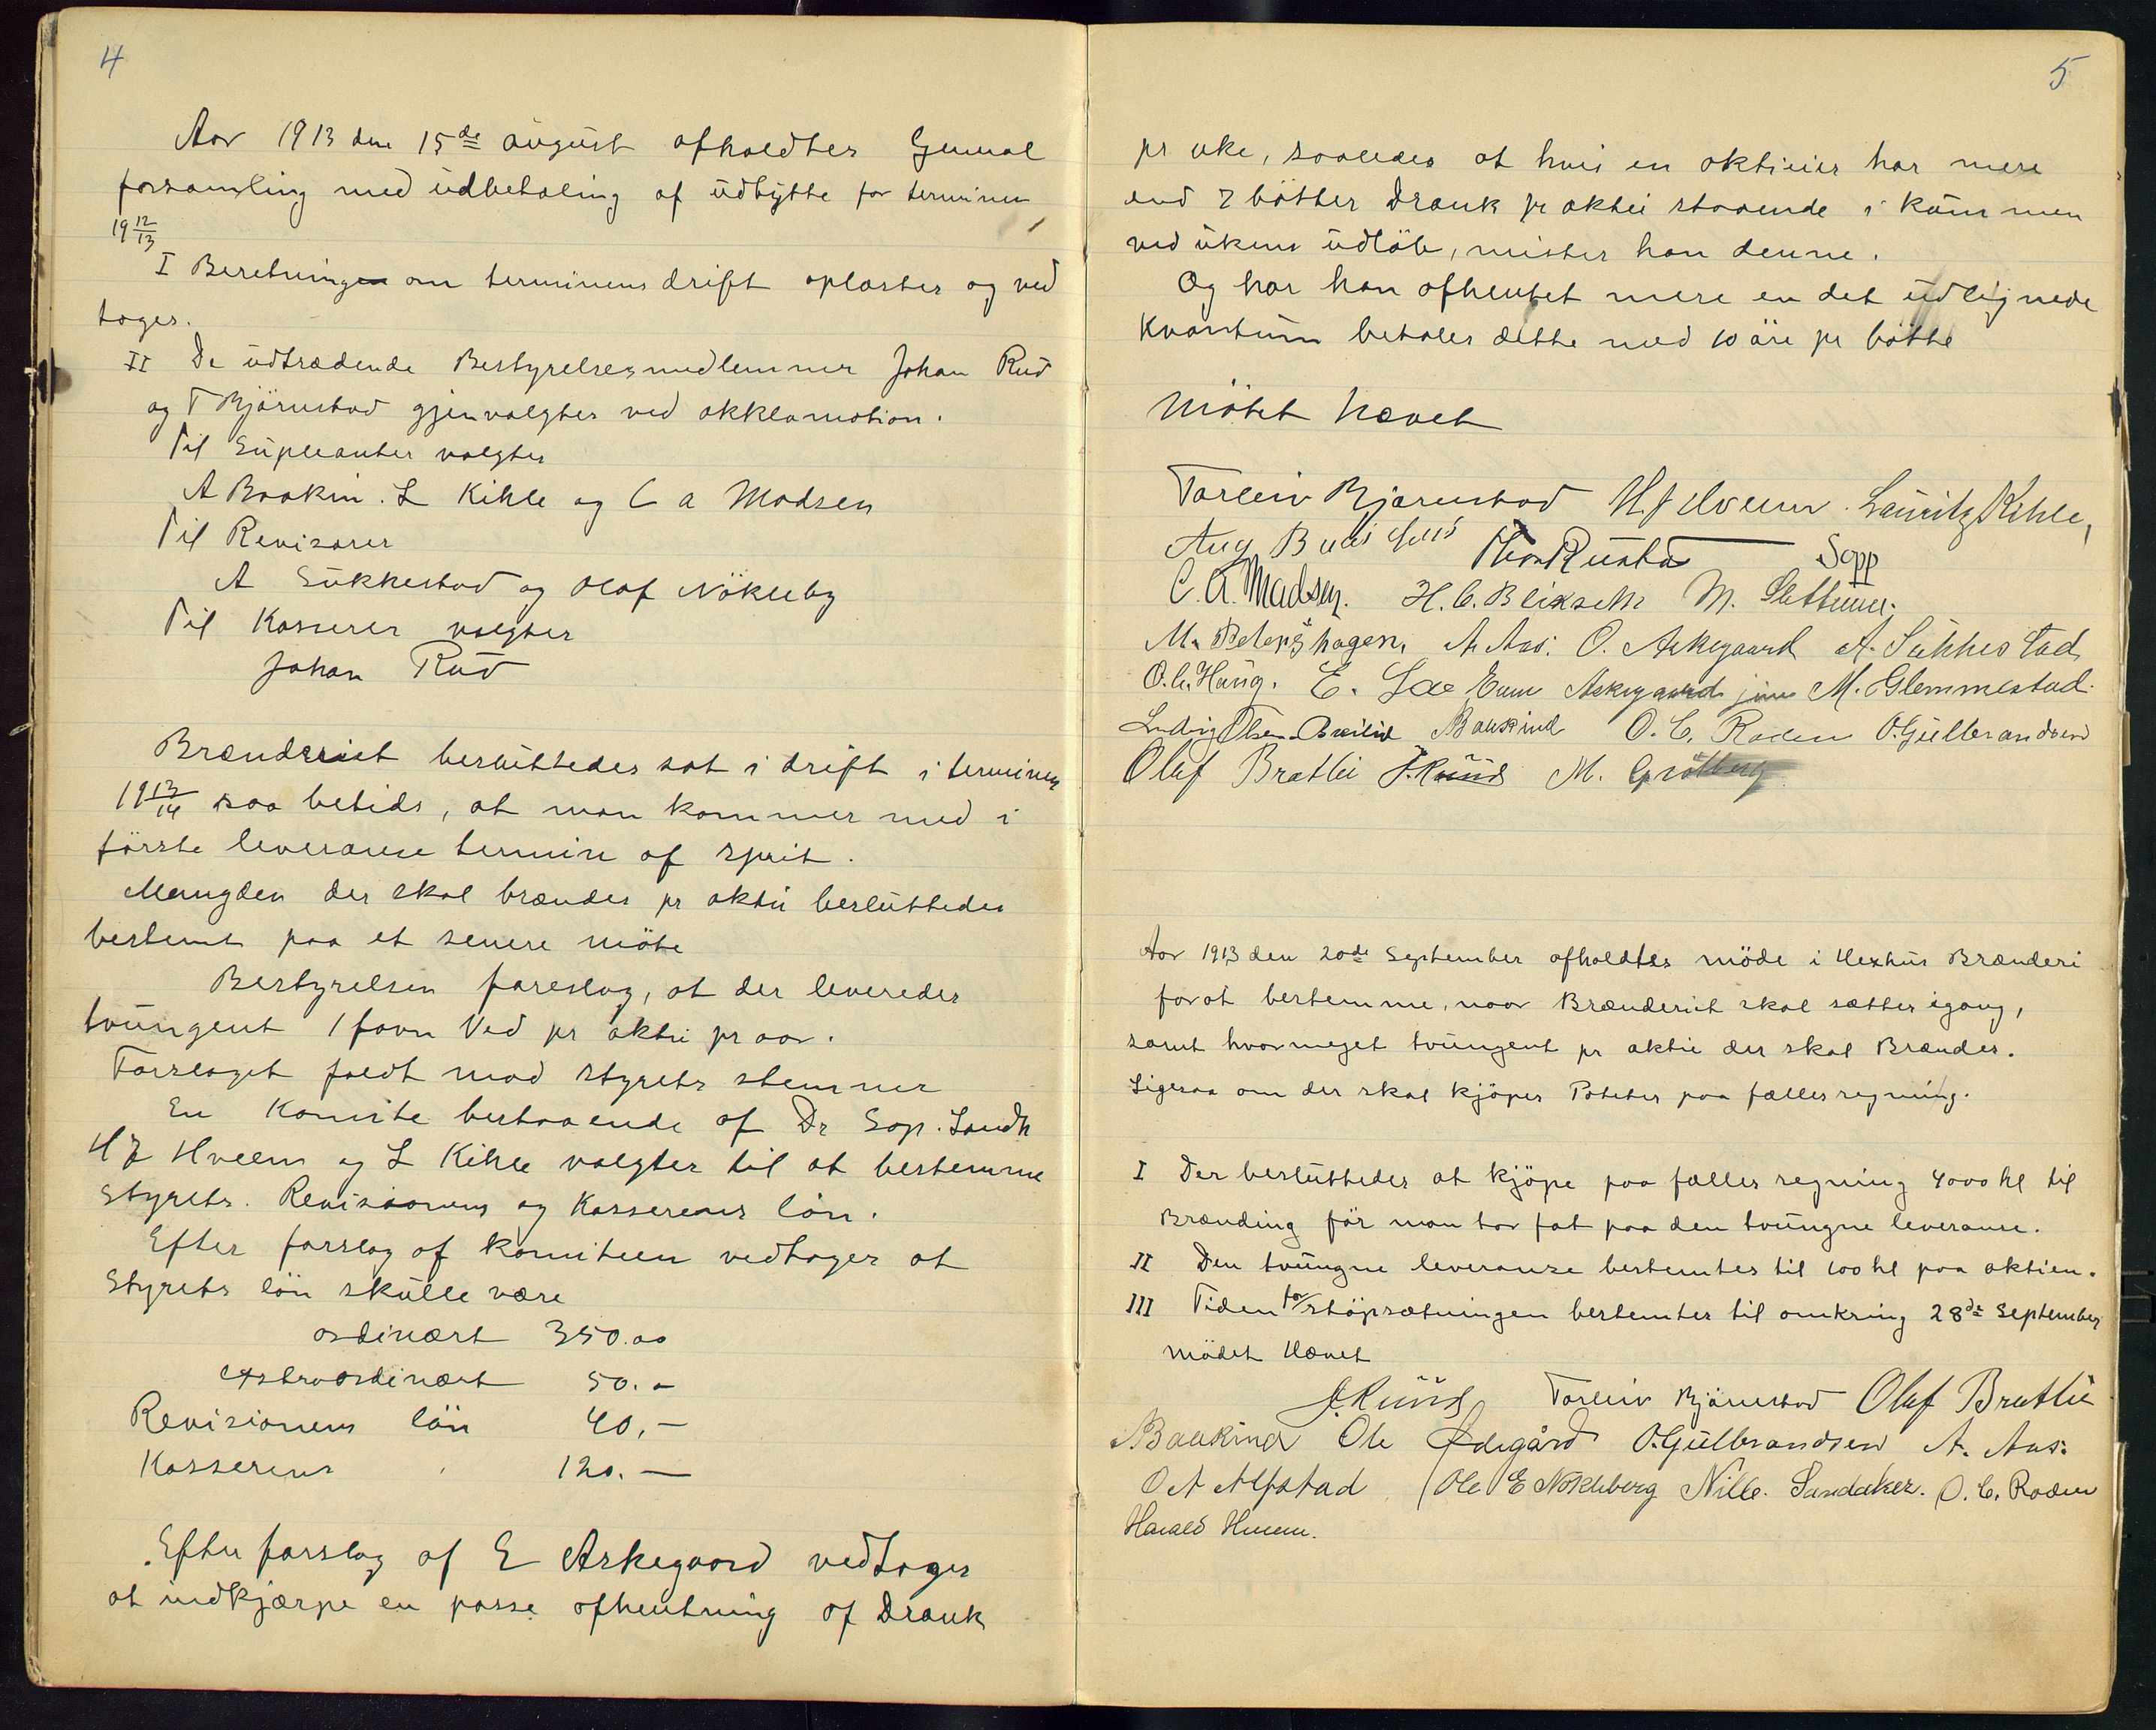 4
Aar 1913 den 15de august afholdtes General
forsamling med udbetaling af udbytte for terminen
19 12/13
I Beretningen om terminens drift oplæstes og ved
toges.
II De udtrædende Bestyrelsesmedlemmer Johan Rud
og T Bjørnstad gjenvalgtes ved akklamation.
Til Supleanter valgtes
A Baakin. L Kihle og C a Madsen
Til Revisorer
A Sukkestad og Olaf Nökleby
Til Kasserer valgtes
Johan Rud
Brænderiet besluttedes sat i drift i terminen
19 13/14 saa betids, at man kommer med i
förste leveranse termin af sprit.
Mængden der skal brændes pr aktie besluttedes
bestemt paa et senere möte
Bestyrelsen foreslog, at der leveredes
tvungent 1 favn Ved pr aktie pr aar.
Forslaget faldt mod styrets stemmer
En Komite bestaaende af Dr Sop. Landh
H J Hveem og L Kihle valgtes til at bestemme
Styrets. Revisionens og Kasserens lön.
Efter forslag af komiteen vedtoges at
Styrets lön skulle være
ordinært 350.00
extraordinært 50.-
Revisionens lön 40,-
Kasserens 120.-
Efter forslag af E Askegaard vedtoges
at indkjærpe en passe afhentning af Drank
5
pr uke, saaledes at hvis en aktieier har mere
end 7 bötter Drank pr aktie staaende i kummen
ved ukens udlöb, mister han denne.
Og har han afhentet mere en det udlignede
Kvantum betales dette med 10 øre pr bötte
Mötet hævet
Torleiv Bjørnstad H J Hveem. Lauritz Kihle,
Aug Thor Rustad Sopp
C. A. Madsen. H. C. Blixseth M. Slettum.
M. Petershagen. A. Aas. O. Askegaard A. Sukkestad
O. C. Haug. E. Lee Even Askegaard jun M. Glemmestad.
Ludvig Olsen Baukind O. C. Roden O. Gulbrandsen
Olaf Bratlie J. Ruud M. Grötberg
Aar 1913 den 20de September afholdtes möde i Hexhus Brænderi
for at bestemme, naar Brænderiet skal sættes igang,
samt hvormeget tvungent pr aktie der skal Brændes.
Ligesaa om der skal kjöpes Poteter paa fælles regning.
I Der besluttedes at kjöpe paa fælles regning 4000 hl til
Brænding för man tar fat paa den tvungne leveranse.
II Den tvungne leveranse bestemtes til 100 hl paa aktien.
III Tiden for støpsætningen bestemtes til omkring 28de September
mödet Hævet
J. Ruud Torleiv Bjørnstad Olaf Bratlie
Baukind Ole Ødegård O. Gulbrandsen A. Aas.
O A Alfstad Ole E Nökleberg Nille. Sandaker. O. C. Roden
Harald Hveem.